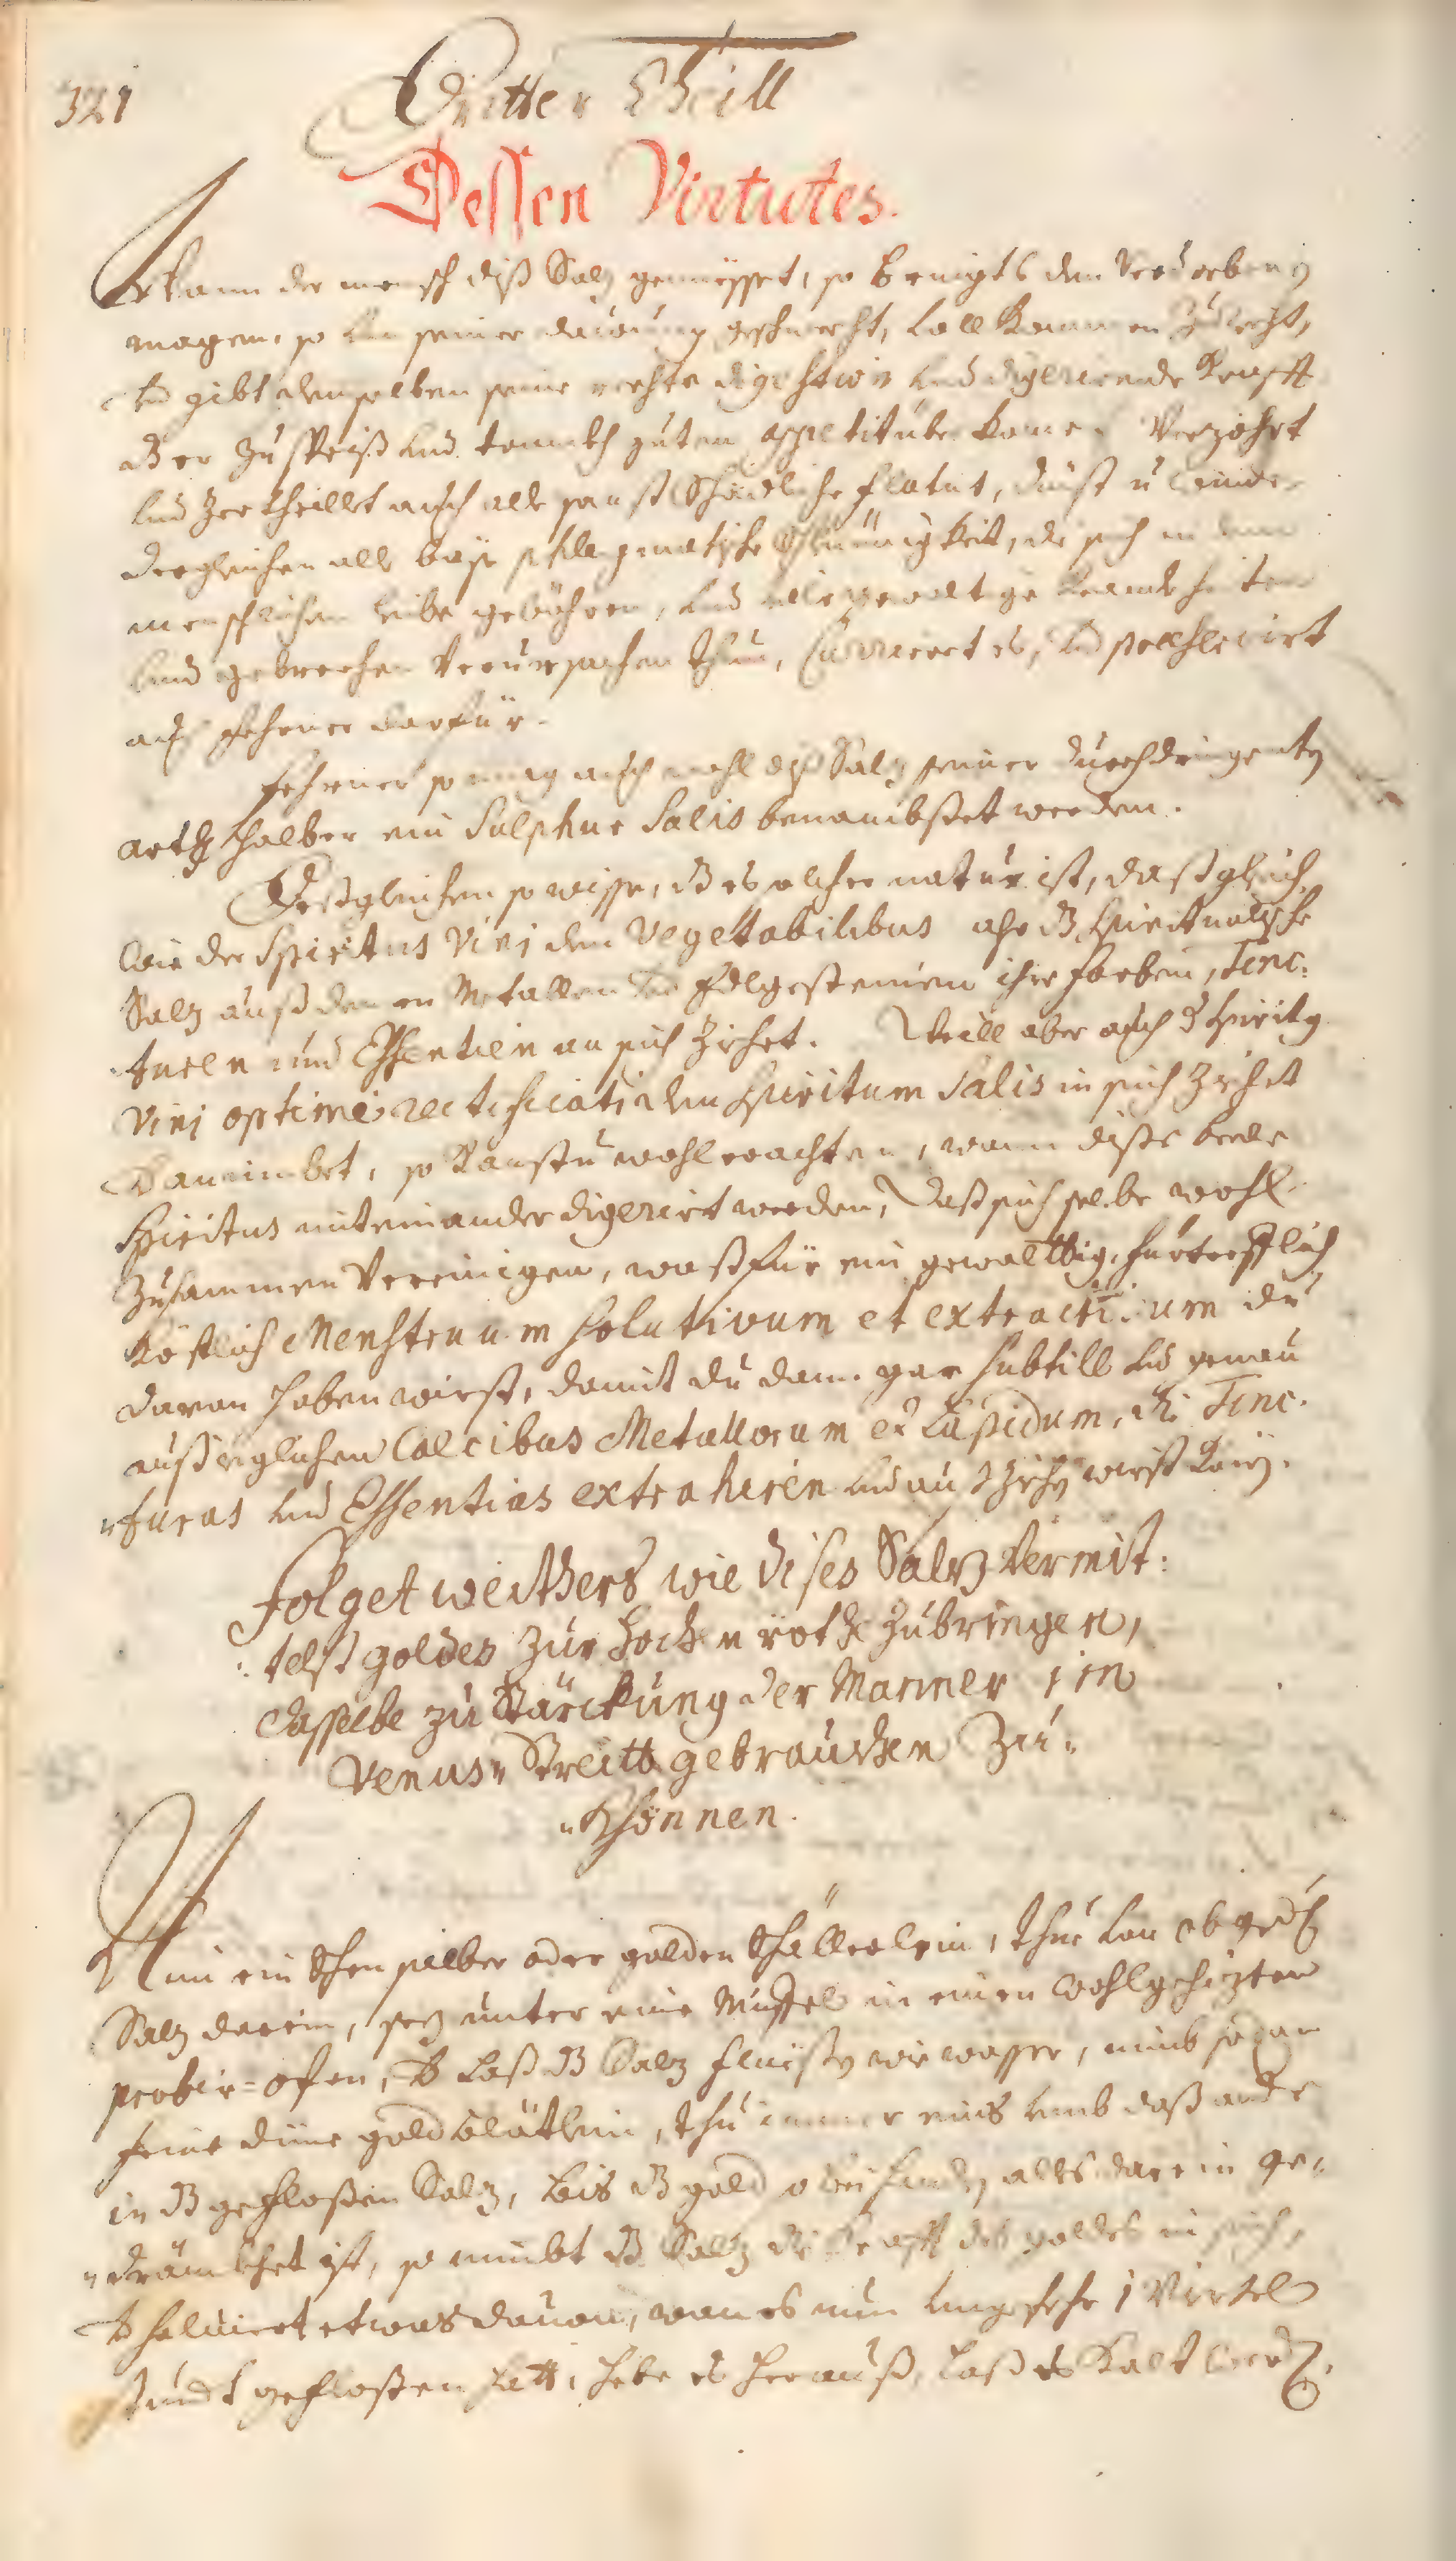 321
Dritter Theill
Dessen Virtutes.
Wann der mensch diß Salz geniesset, so bringts den Verdorbenen
magen, so von seiner dauung geschwecht, vollkommen zurecht,
und gibt demselben seine rechte digestion und digerirende Krafft
dz er zu speiß und tranckh guten appetit überkome. Verzöhrt
und zertheillet auch alle sonst schädliche flatus, dünst u. winde
dergleichen alle böse phlegmatische schleimigkeit, die sich in dem
menschlichen leibe gebähren, und alle gewaltige kranckheiten
und gebrechen Verursachen thun, Curirert es, und praeservirt
auch fehrner darfür.
fehrner so mag auch wohl diß Salz seiner durchdringenten
arth halber ein Sulphur Salis benambset werden.
Deßgleichen so wisse, dz es solcher natur ist, daß gleich
wie der Spiritus Vini den Vegetabilibus also dz Spiritualische
Salz auß denen Metallen und Edlgesteinen ihre farben, Tinc:
turen und Essentien an sich ziehet. Weill aber auch der Spiritus
Vini optime rectificati den Spiritum Salis in sich ziehet
und annimbet, so kanstu wohl erachten, wann dise beede
Spiritus miteinander digerirt werden, daß sich selbe wohl
zusammen Vereinigen, waß für ein gewalttig, fürtrefflich
köstlich Menstruum solutivum et extractivum du
daran haben wirst, damit du dann gar subtill und genau
auß iglichen Calcibus Metallorum et Lapidum, die Tinc:
turas und Essentias extrahiren und außziehen wirst könen.
Folget weithers wie dises Saltz Vermit:
telst goldes zur hochen röthe zubringen,
dasselbe zu Stärckung der Manner im
Venus Streitt gebrauchen zu
khönnen.
Nim ein schon silber oder golden schällerlein, thue von obgedachten
Salz darein, sez unter eine Muffel in einen wohlgehizten
probir=ofen, und laß dz Salz fliessen wie wasser, nimb sodan
feine düne goldblätlein, thu immer eins umb daß ander
in dz geflossen Salz, bis dz gold alles darein ge=
tränckhet ist, so nimbt dz Salz die Krafft des goldes in sich,
und solvirt etwas dauon, wan es nun ungefehr 1 Viertel
stundt geflossen hatt, hebe es herauß, laß es kalt werden,